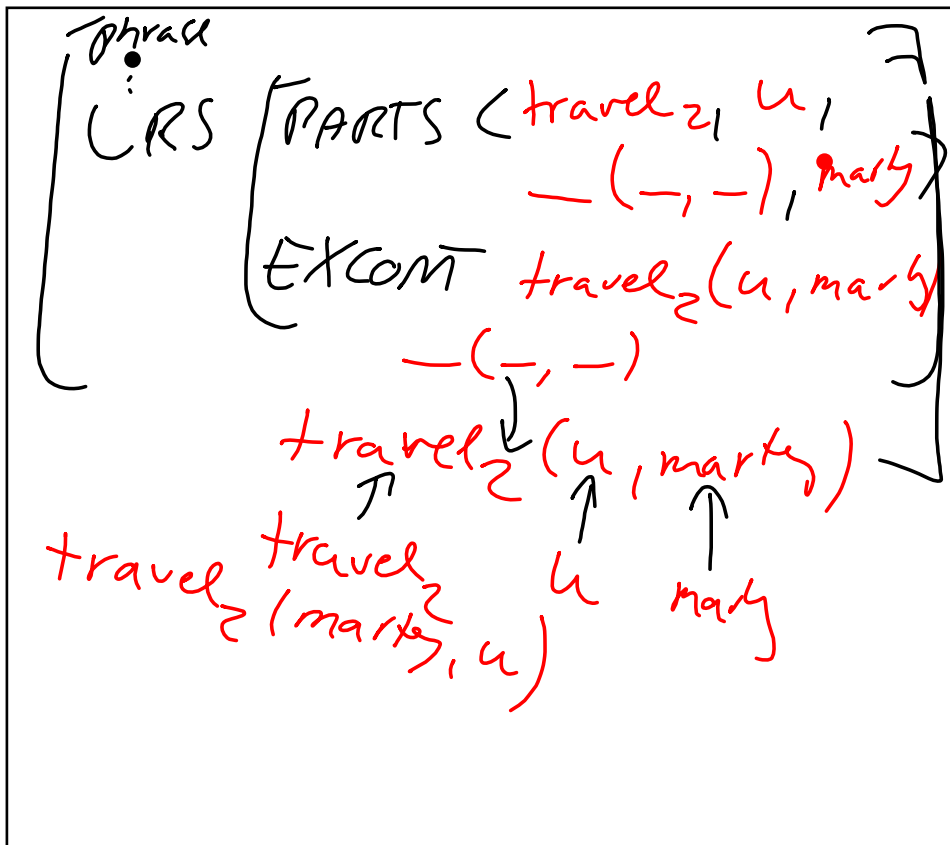 phrase
:
LRS [PARTS < travel₂, u,
_ ( _, _ ), marty >
EXCONT travel₂(u, marty)
_ ( _, _ )
travel₂ (u, marty)
travel₂ u marty
travel₂ (marty, u)